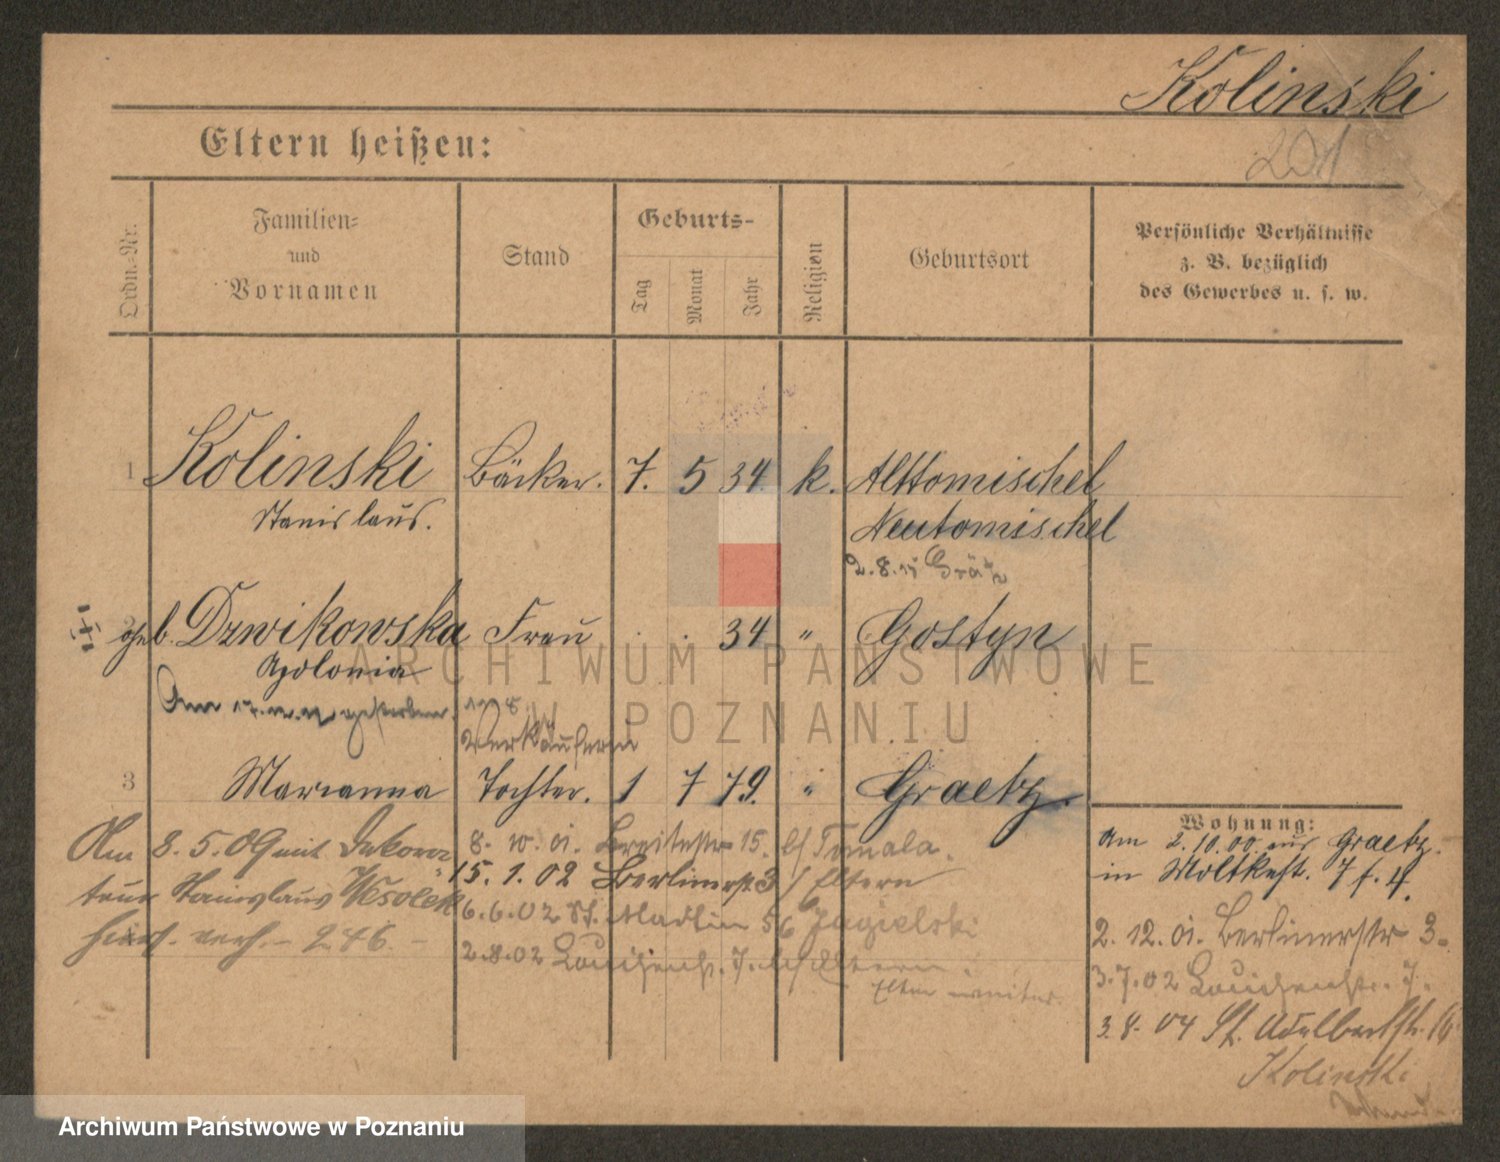 Kolinski
201
Eltern heißen:
Ordn.-Nr.
Familien-
und
Vornamen
Stand
Geburts-
Tag
Monat
Jahr
Religion
Geburtsort
Persönliche Verhältnisse
z. B. bezüglich
des Gewerbes u. s. w.
1 Kolinski Bäcker. 7. 5 34. k. Alttomischel
Stanislaus. Neutomischel
2.8.15 Grätz
geb. Dzwikowska Frau 34 " Gostyn
Apolonia
Am gestorben.
Verkäuferin
3 Marianna Tochter. 1 7 79. " Graetz.
Am 8.5.09 mit Dekora-
teur Stanislaus Wesolek
hier verh. - 246. -
8. 10. 01. Breitestr 15. b/ Tomala.
15. 1. 02 Berlinerstr 3 / Eltern
6.6.02 St. Martin 56 Jagielski
2.8.02 Louisenstr. 7. b/ Eltern.
Eltern
Wohnung:
Am 2.10.00 aus Graetz.
in Moltkestr. 7 f. 4.
2. 12. 01. Berlinerstr 3.
3.7.02 Louisenstr. 7.
3. 8. 04 St. Adalbertstr. 16
Kolinski
ARCHIWUM PAŃSTWOWE
W POZNANIU
Archiwum Państwowe w Poznaniu